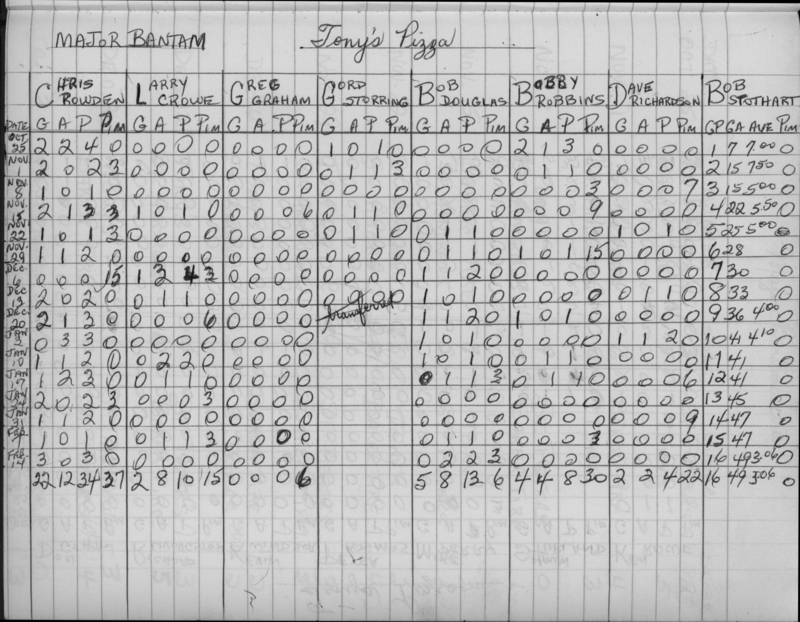 MAJOR BANTAM Tony's Pizza
CHRIS LARRY GREG GORD BOB BOBBY DAVE BOB
ROWDEN CROWE GRAHAM STORRING DOUGLAS ROBBINS RICHARDSON STOTHART
DATE G A P Pim G A P Pim G A P Pim G A P Pim G A P Pim G A P Pim G A P Pim GP GA AVE Pim
OCT 25 2 2 4 0 0 0 0 0 0 0 0 0 1 0 1 0 0 0 0 0 2 1 3 0 0 0 0 0 1 7 7.00 0
NOV 1 2 0 2 3 0 0 0 0 0 0 0 0 0 1 1 3 0 0 0 0 0 1 1 0 0 0 0 0 2 15 7.50 0
NOV 8 1 0 1 0 0 0 0 0 0 0 0 0 0 0 0 0 0 0 0 0 0 0 0 3 0 0 0 7 3 15 5.00 0
NOV 15 2 1 3 3 1 0 1 0 0 0 0 6 0 1 1 0 0 0 0 0 0 0 0 9 0 0 0 0 4 22 5.50 0
NOV 22 1 0 1 3 0 0 0 0 0 0 0 0 0 1 1 0 0 1 1 0 0 0 0 0 1 0 1 0 5 25 5.00 0
NOV 29 1 1 2 0 0 0 0 0 0 0 0 0 0 0 0 0 0 1 1 0 1 0 1 15 0 0 0 0 6 28 0
DEC 6 0 0 0 15 1 3 4 3 0 0 0 0 0 0 0 0 1 1 2 0 0 0 0 0 0 0 0 0 7 30 0
DEC 13 2 0 2 0 0 1 1 0 0 0 0 0 0 0 0 0 1 0 1 0 0 0 0 0 0 1 1 0 8 33 0
DEC 20 2 1 3 0 0 0 0 6 0 0 0 0 transferred 1 1 2 0 1 0 1 0 0 0 0 0 9 36 4.00 0
JAN 3 0 3 3 0 0 0 0 0 0 0 0 0 1 0 1 0 0 0 0 0 1 1 2 0 10 41 4.10 0
JAN 10 1 1 2 0 0 2 2 0 0 0 0 0 1 0 1 0 0 1 1 0 0 0 0 0 11 41 0
JAN 17 1 2 2 0 0 1 1 0 0 0 0 0 0 1 1 3 0 1 1 0 0 0 0 6 12 41 0
JAN 2 0 2 3 0 0 0 3 0 0 0 0 0 0 0 0 0 0 0 0 0 0 0 0 13 45 0
JAN 31 1 1 2 0 0 0 0 0 0 0 0 0 0 0 0 0 0 0 0 0 0 0 0 9 14 47 0
FEB 1 0 1 0 0 1 1 3 0 0 0 0 0 1 1 0 0 0 0 3 0 0 0 0 15 47 0
FEB 14 3 0 3 0 0 0 0 0 0 0 0 0 0 2 2 3 0 0 2 0 0 0 0 0 16 49 3.06 0
22 12 34 37 2 8 10 15 0 0 0 6 5 8 13 6 4 4 8 30 2 2 4 22 16 49 3.06 0